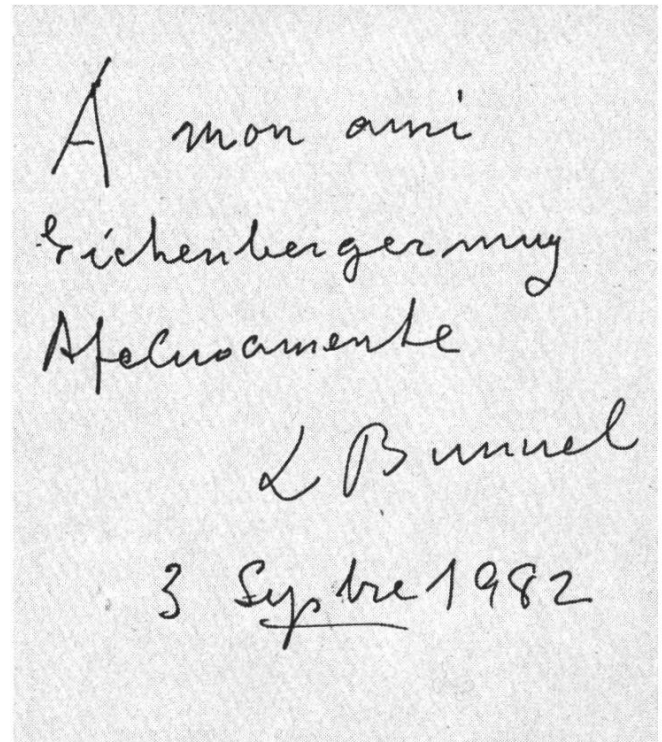 A mon ami
Eichenberger muy
Afectuosamente
L Bunuel
3 Septbre 1982